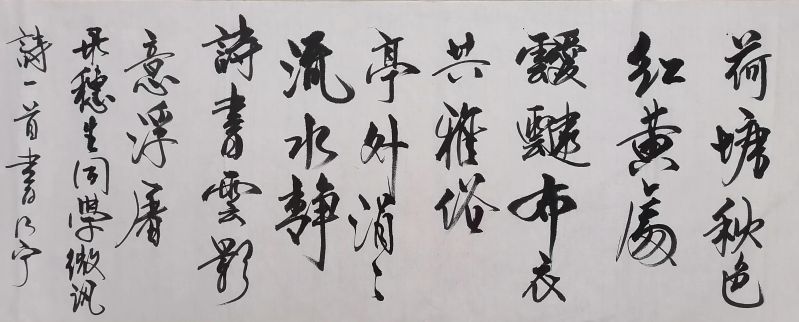 荷塘秋色
红黄處
靉靆布衣
共雅俗
亭外涓〻
流水静
詩書雲影
意浮屠
录穗生同學微訊
詩一首書宁